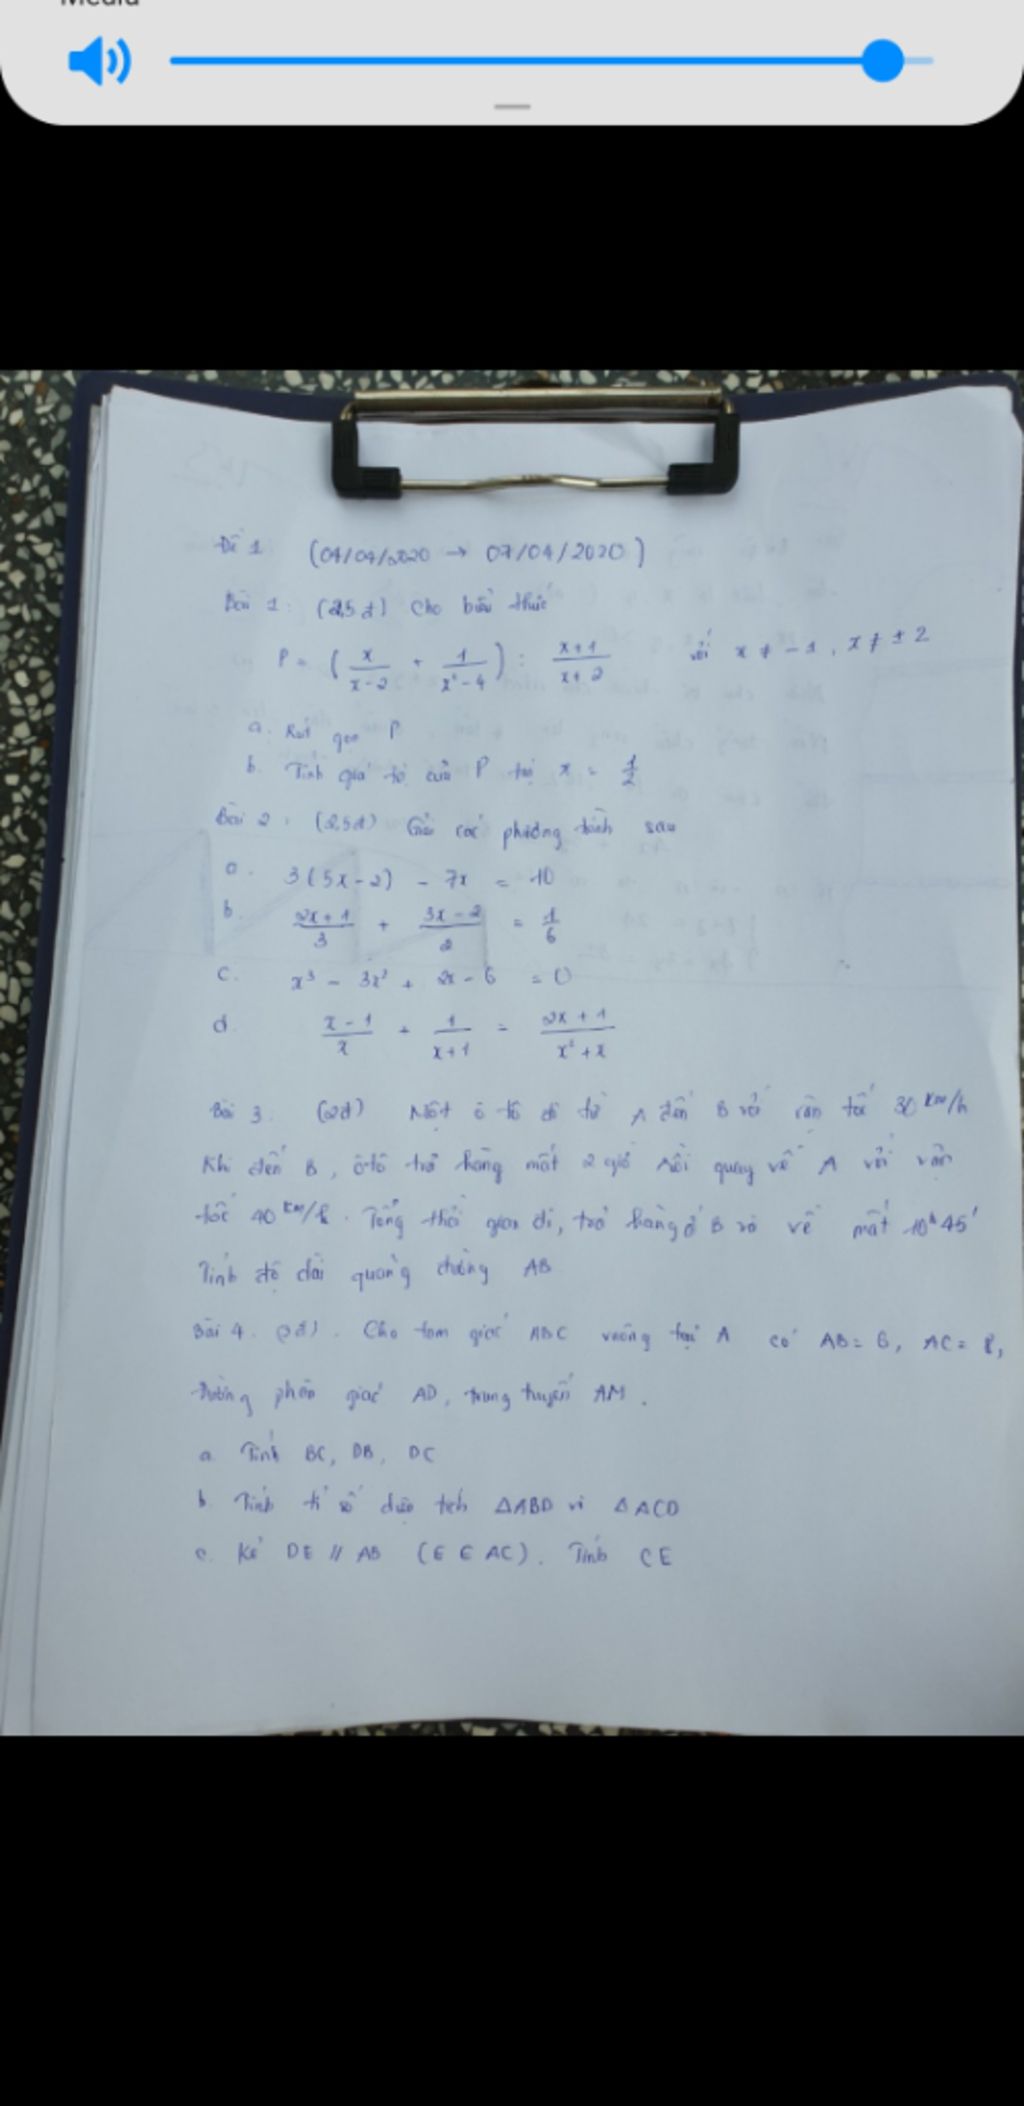 Media
Đề 1 (04/04/2020 → 07/04/2020)
Bài 1: (2,5đ) Cho biểu thức
P = (x/(x-2) + 1/(x²-4)) : (x+1)/(x+2) với x ≠ -1, x ≠ ±2
a. Rút gọn P
b. Tính giá trị của P tại x = 1/2
Bài 2: (2,5đ) Giải các phương trình sau
a. 3(5x-2) - 7x = 10
b. (2x+1)/3 + (3x-2)/2 = 1/6
c. x³ - 3x² + 2x - 6 = 0
d. (x-1)/x + 1/(x+1) = (2x+1)/(x²+x)
Bài 3. (2đ) Một ô tô đi từ A đến B với vận tốc 30 km/h
Khi đến B, ô tô trả hàng mất 2 giờ rồi quay về A với vận
tốc 40 km/h. Tổng thời gian đi, trả hàng ở B và về mất 10h45'
Tính độ dài quãng đường AB
Bài 4. (3đ). Cho tam giác ABC vuông tại A có AB = 6, AC = 8,
đường phân giác AD, trung tuyến AM.
a. Tính BC, DB, DC
b. Tính tỉ số diện tích ΔABD và ΔACD
c. Kẻ DE // AB (E ∈ AC). Tính CE